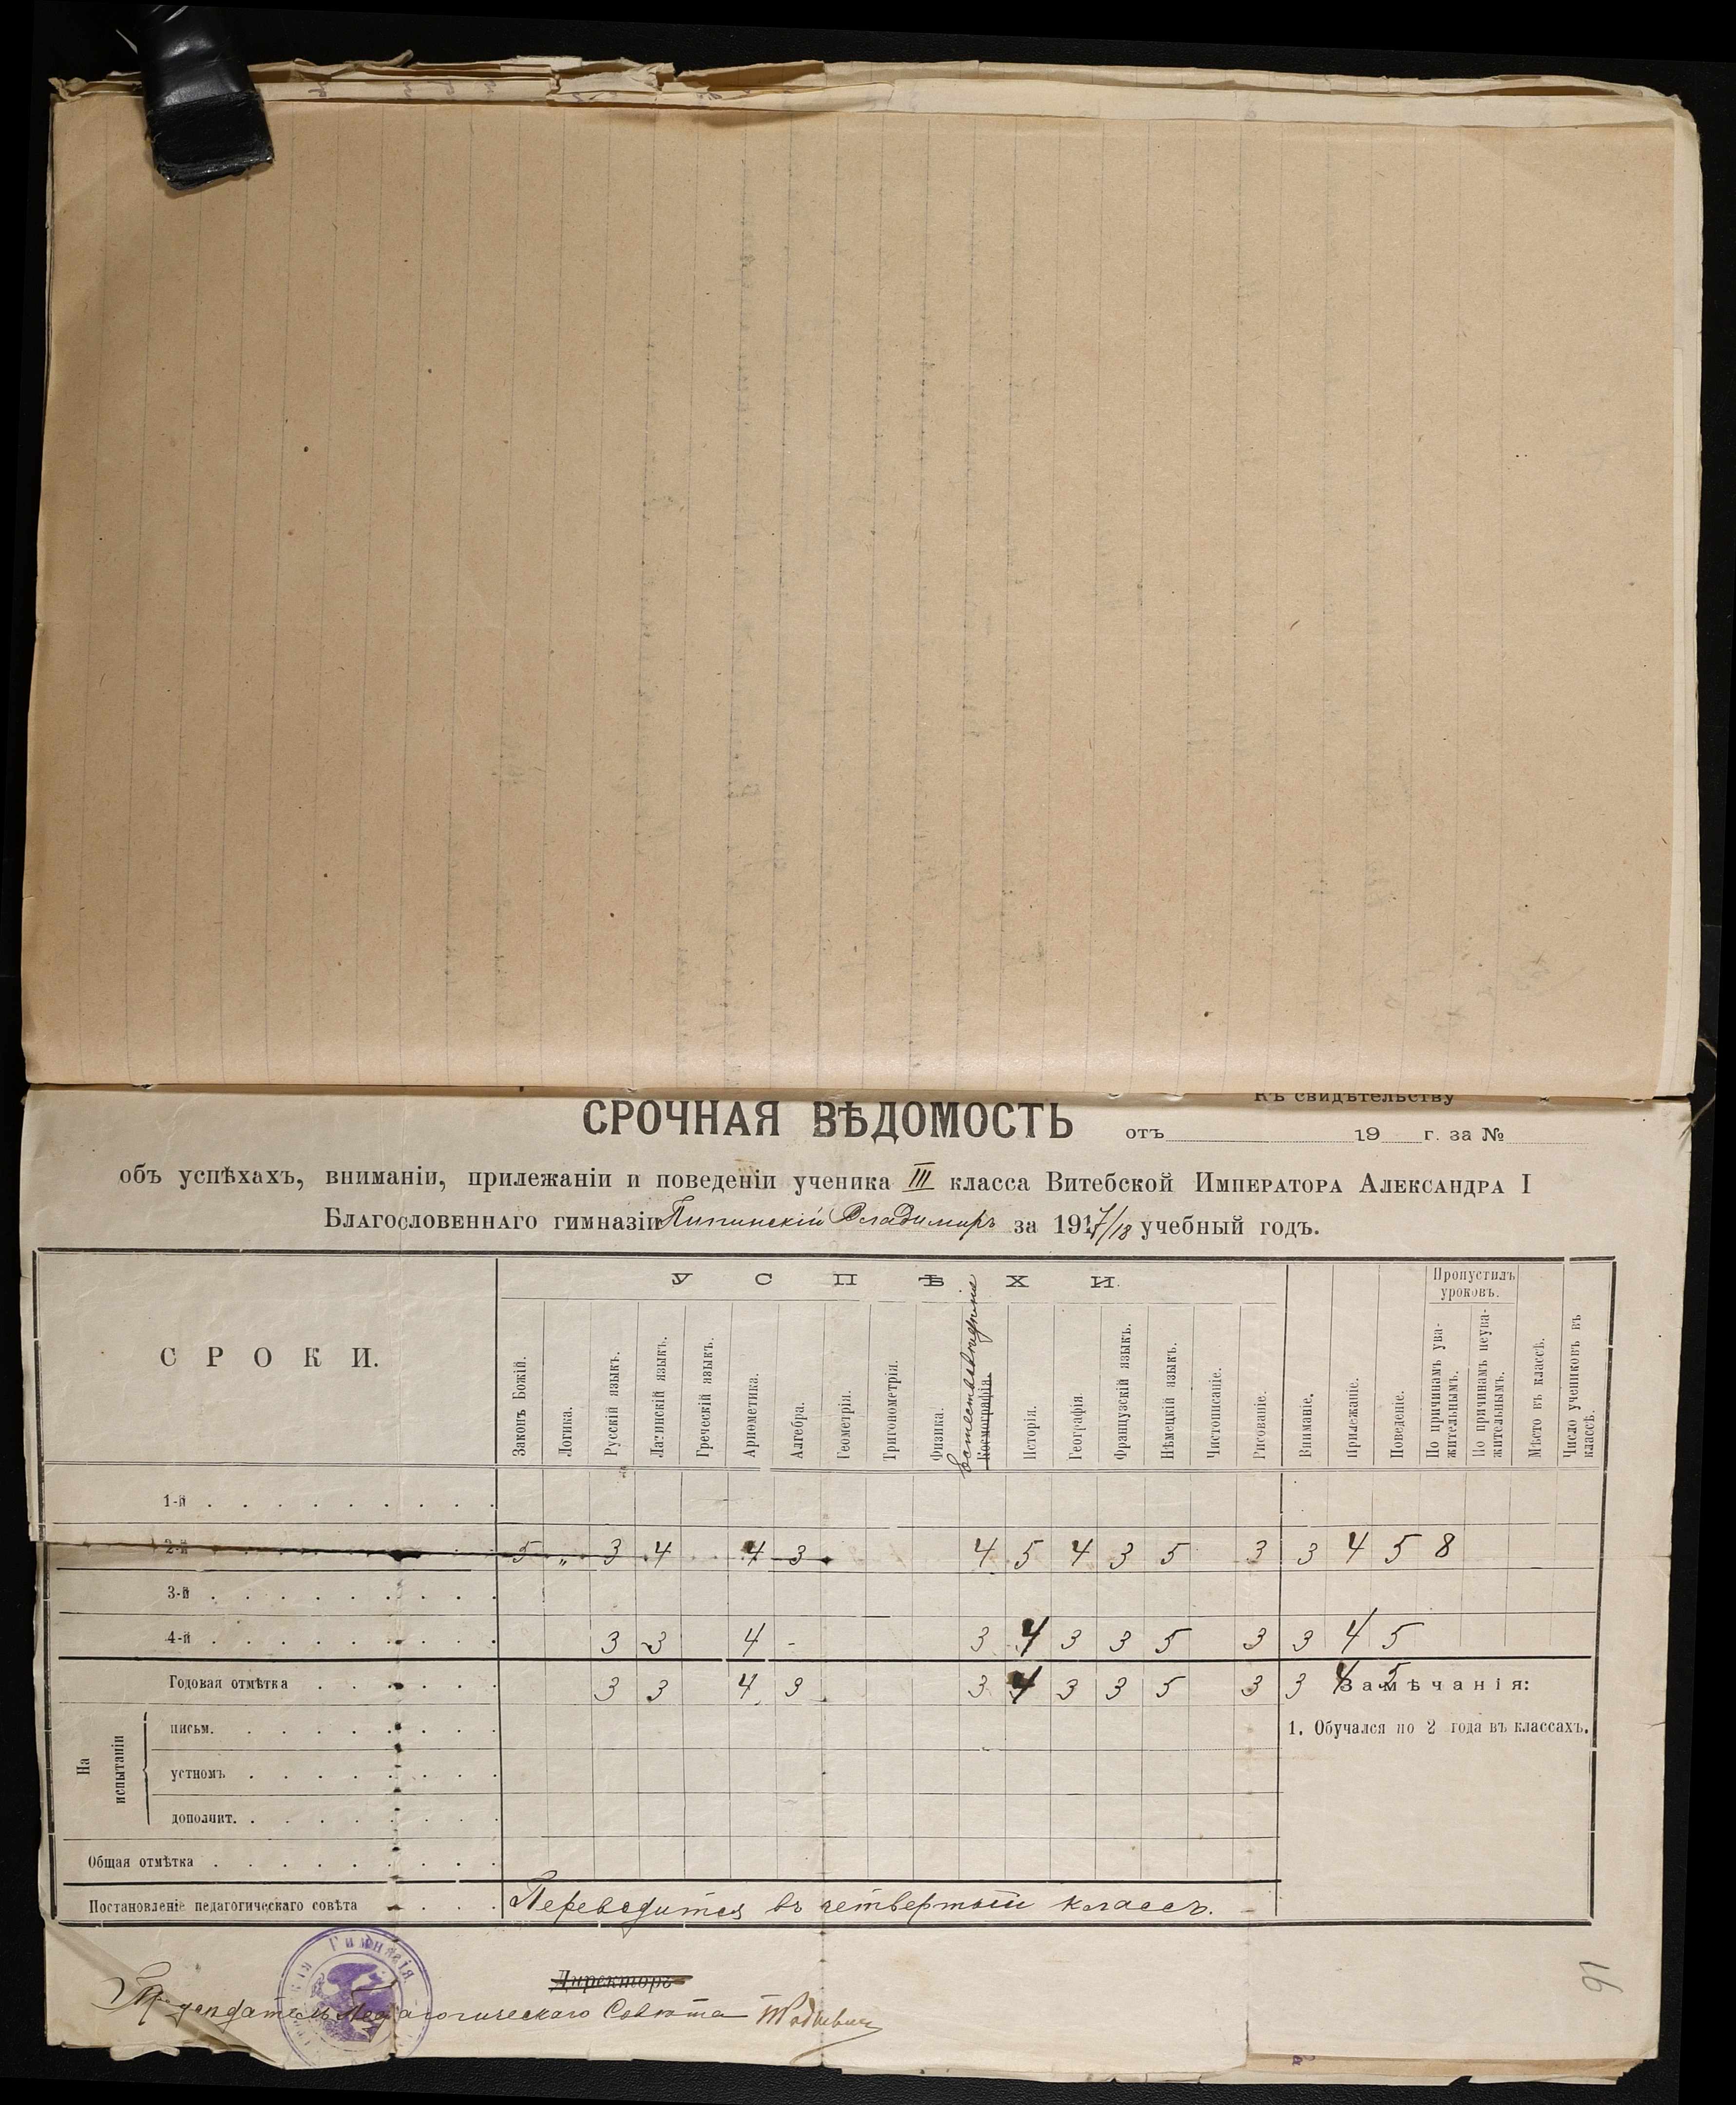 Къ свидѣтельству
СРОЧНАЯ ВѢДОМОСТЬ
отъ 19 г. за №
объ успѣхахъ, вниманіи, прилежаніи и поведеніи ученика III класса Витебской Императора Александра I
Благословеннаго гимназіи Владимиръ за 1917/18 учебный годъ.
СРОКИ.
УСПѢХИ.
Законъ Божій.
Логика.
Русскій языкъ.
Латинскій языкъ.
Греческій языкъ.
Ариѳметика.
Алгебра.
Геометрія.
Тригонометрія.
Физика.
Космографія.
Исторія.
Географія.
Французскій языкъ.
Нѣмецкій языкъ.
Чистописаніе.
Рисованіе.
Вниманіе.
Прилежаніе.
Поведеніе.
Пропустилъ
уроковъ.
По причинамъ ува-
жительнымъ.
По причинамъ неува-
жительнымъ.
Мѣсто въ классѣ.
Число учениковъ въ
классѣ.
1-й
2-й 5 „ 3 4 4 3 4 5 4 3 5 3 3 4 5 8
3-й
4-й 3 3 4 - 3 4 3 3 5 3 3 4 5
Годовая отмѣтка 3 3 4 3 3 4 3 3 5 3 3 4 5
Замѣчанія:
На испытаніи
письм.
1. Обучался по 2 года въ классахъ.
устномъ
дополнит.
Общая отмѣтка
Постановленіе педагогическаго совѣта Переводится въ четвертый классъ.
Гимназія
Директоръ
Педагогическаго Совѣта
91